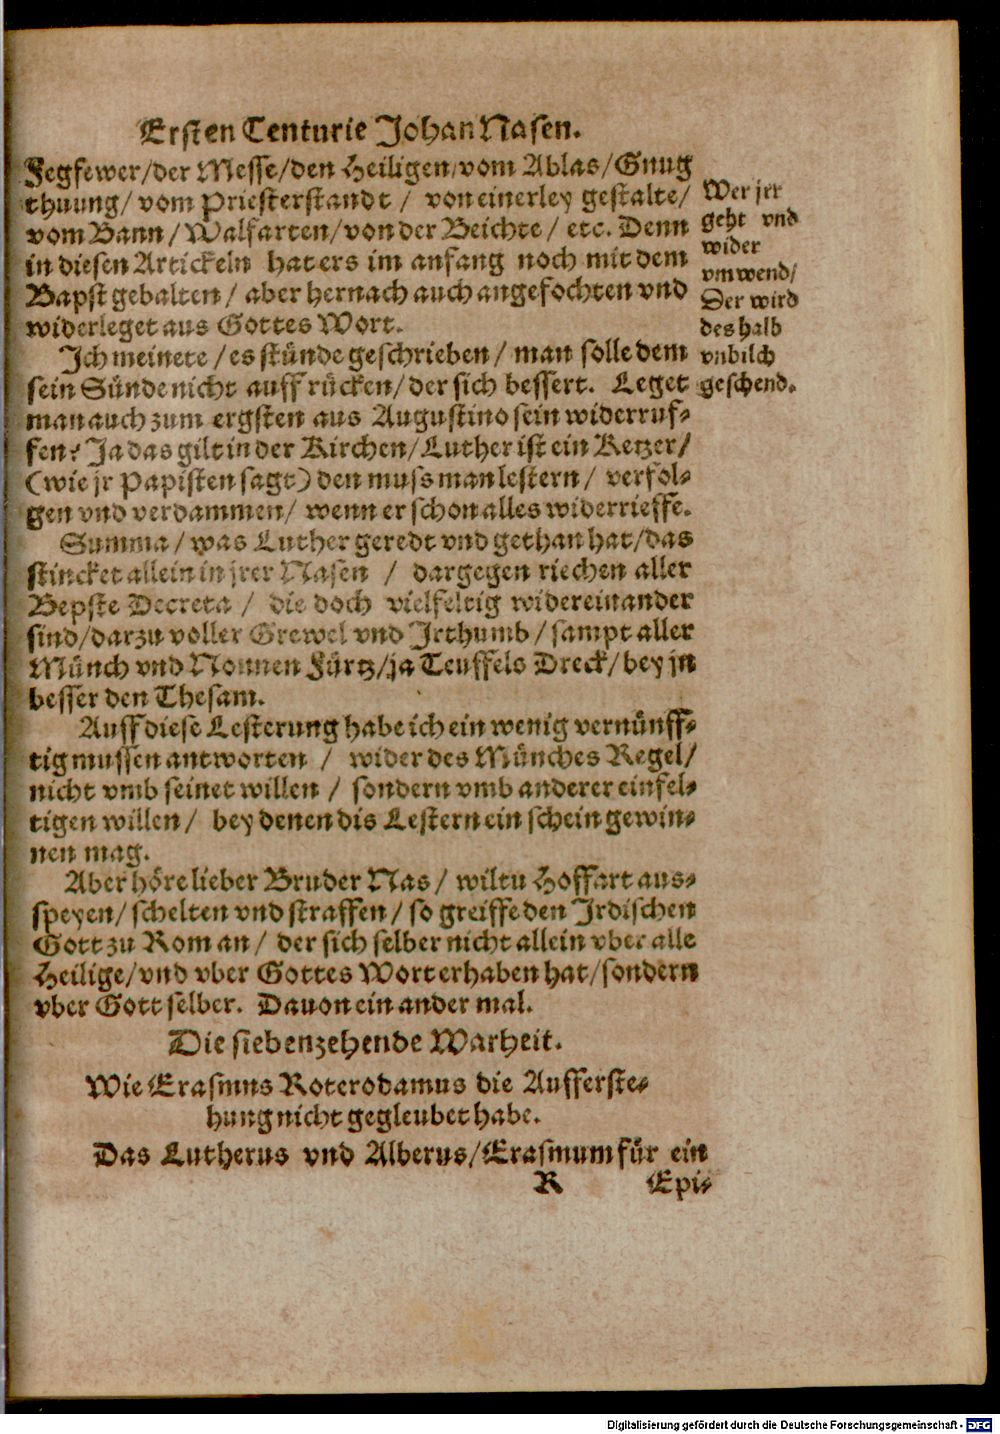 Ersten Centurie Johan Nasen.
Fegfewer/der Messe/den Heiligen/vom Ablas/Gnug
thuung/ vom Priesterstandt / von einerley gestalte/
vom Bann/Walfarten/von der Beichte/ etc. Denn
in diesen Artickeln hat ers im anfang noch mit dem
Bapst gehalten/ aber hernach auch angefochten vnd
widerleget aus Gottes Wort.
Wer jrr
geht vnd
wider
vmwend/
Der wird
deshalb
vnbilch
geschend.
Ich meinete/es stünde geschrieben/ man solle dem
sein Sünde nicht auffrücken/der sich bessert. Leget
man auch zum ergsten aus Augustino sein widerruf-
fen? Ja das gilt in der Kirchen/Luther ist ein Ketzer/
(wie jr Papisten sagt) den muss man lestern/ verfol-
gen vnd verdammen/ wenn er schon alles widerrieffe.
Summa/ was Luther geredt vnd gethan hat/das
stincket allein in jrer Nasen / dargegen riechen aller
Bepste Decreta / die doch vielfeltig widereinander
sind/darzu voller Grewel vnd Jrthumb/sampt aller
Münch vnd Nonnen Fürtz/ja Teuffels Dreck/bey jn
besser den Thesam.
Auff diese Lesterung habe ich ein wenig vernünff-
tig mussen antworten / wider des Münches Regel/
nicht vmb seinet willen / sondern vmb anderer einfel-
tigen willen/ bey denen dis Lestern ein schein gewin-
nen mag.
Aber höre lieber Bruder Nas/ wiltu Hoffart aus-
speyen/schelten vnd straffen/so greiffe den Jrdischen
Gott zu Rom an/ der sich selber nicht allein vber alle
Heilige/vnd vber Gottes Wort erhaben hat/sondern
vber Gott selber. Dauon ein ander mal.
Die siebenzehende Warheit.
Wie Erasmus Roterodamus die Aufferste-
hung nicht gegleubet habe.
Das Lutherus vnd Alberus/Erasmum für ein
R Epi-
Digitalisierung gefördert durch die Deutsche Forschungsgemeinschaft - DFG